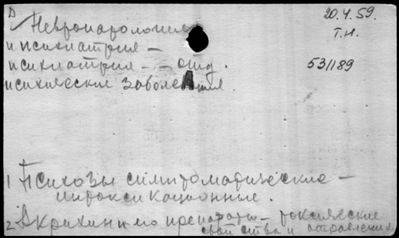 D
Невропатология
и психиатрия –
психиатрия – – отд.
психические заболевания.
20.4.59.
Т.н.
531189
1 Психозы симптоматические –
интоксикационные.
2 Акрихин и его препараты – токсические
свойства и отравления